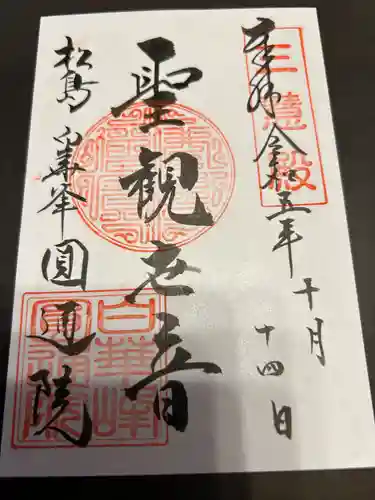 奉拝 令和五年十月
十四日
三慧殿
聖観世音
松島 白華峰 圓通院
白華峰
圓通院